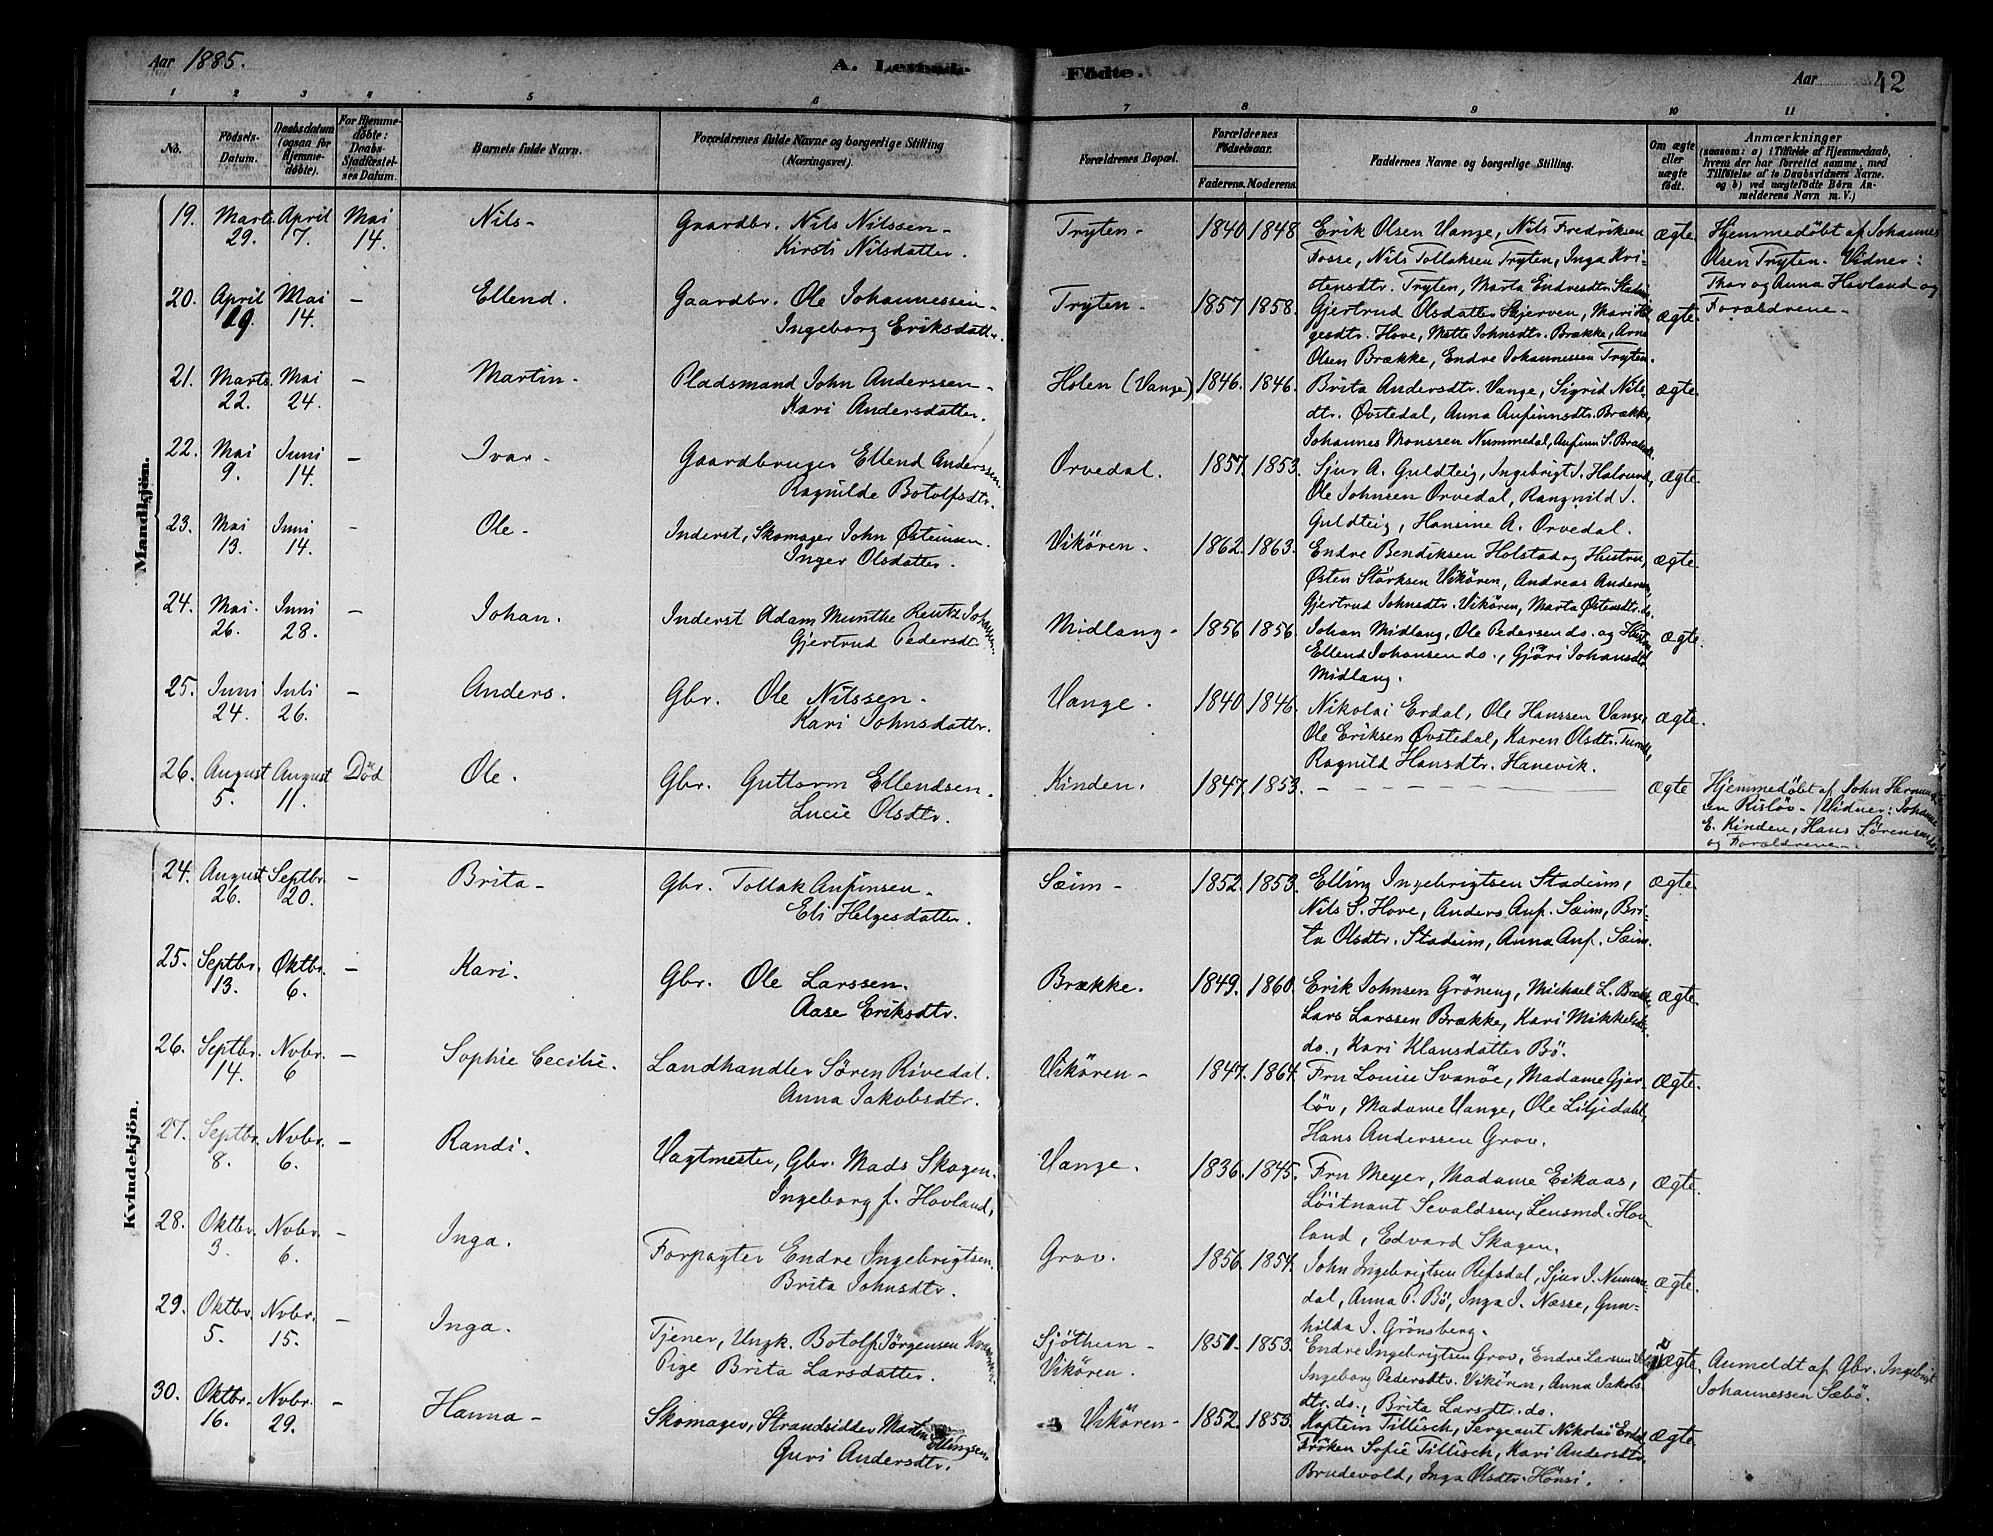 Aar 1885.
A. Levende Födte.
Aar 42
1 2 3 4 5 6 7 8 9 10 11
No.
Födsels-Datum.
Daabsdatum (ogsaa for Hjemme-döbte).
For Hjemme-döbte: Daabs-Stadfæstel-ses Datum.
Barnets fulde Navn.
Forældrenes fulde Navne og borgerlige Stilling (Næringsvei).
Forældrenes Bopæl.
Forældrenes Födselsaar.
Faderens. Moderens.
Faddernes Navne og borgerlige Stilling.
Om ægte eller uægte födt.
Anmærkninger (saasom: a) i Tilfælde af Hjemmedaab, hvem der har forrettet samme, med Tilföielse af to Daabsvidners Navne, og b) ved uægtefödte Börn An-melderens Navn m. V.)
Mandkjön.
19. Marts 29. April 7. Mai 14. Nils- Gaardbr. Nils Nilssen-
Kirsti Nilsdatter.
Tryten- 1840 1848. Erik Olsen Vange, Nils Fredriksen
Fosse, Nils Tollaksen Tryten, Inga Kri-
stensdtr. Tryten, Marta Endresdtr.
ægte. Hjemmedöbt af Johannes
Olsen Tryten. Vidner:
Thor og Anna Hovland og
Forældrene-
20. April 19. Mai 14. - Ellend. Gaardbr. Ole Johannessen-
Ingeborg Eriksdatter.
Tryten- 1857 1958. Gjertrud Olsdatter Skjerven, Mari Hel-
gesdtr. Hove, Mette Johnsdtr. Brække, Arne
Olsen Brække, Endre Johannessen Tryten.
ægte.
21. Marts 22. Mai 24. - Martin- Pladsmand John Anderssen-
Kari Andersdatter.
Holen (Vange) 1846. 1846. Brita Andersdtr. Vange, Sigrid Nils-
dtr. Øvstedal, Anna Anfinnsdtr. Brække,
Johannes Monssen Nummedal, Anfinn S.
ægte.
22. Mai 9. Juni 14. - Ivar- Gaardbruger Ellend Anderssen.
Ragnilde Botolfsdtr.
Orvedal. 1857. 1853. Sjur A. Guldteig, Ingebrigt I.
Ole Johnsen Orvedal, Rangnild I.
Guldteig, Hansine A. Orvedal.
ægte.
23. Mai 13. Juni 14. - Ole- Inderst, Skomager John Østensen.
Inger Olsdatter.
Vikören. 1862. 1863. Endre Bendiksen Holstad og Hustru,
Østen Störksen Vikören, Andreas Andersen,
Gjertrud Johnsdtr. Vikören, Marta Østensdtr. do.
ægte.
24. Mai. 26. Juni 28. - Johan. Inderst Adam Munthe Rentz Johansen.
Gjertrud Pedersdtr.
Midlang- 1856. 1856. Johan Midlang, Ole Pedersen do. og Hustru
Ellend Johansen do., Gjöri Johansdtr.
Midlang.
ægte.
25. Juni 24. Juli 26. - Anders. Gbr. Ole Nilssen-
Kari Johnsdatter.
Vange. 1840. 1846. Nikolai Erdal, Ole Hanssen Vange,
Ole Eriksen Øvstedal, Karen Olsdtr.
Ragnild Hansdtr. Hanevik.
ægte.
26. August 5. August 11. Död Ole. Gbr. Guttorm Ellendsen.
Lucie Olsdtr.
Kinden. 1847. 1853. - - - ægte Hjemmedöbt af John Hermund-
sen Rislöv- Vidner: Johanne
E. Kinden, Hans Sörensen
og Forældrene-
Kvindekjön.
24. August 26. Septbr. 20. - Brita- Gbr. Tollak Anfinsen-
Eli Helgesdatter.
Sæim- 1852. 1853. Elling Ingebrigtsen Stadeim,
Nils S. Hove, Anders Anf. Sæim, Bri-
ta Olsdtr. Stadeim, Anna Anf. Sæim.
ægte
25. Septbr. 13. Oktbr. 6. - Kari. Gbr. Ole Larssen.
Aase Eriksdtr.
Brække. 1849. 1860. Erik Johnsen Gröneng, Michael L. Brække,
Lars Larssen Brække, Kari Mikkelsdtr.
do., Kari Klausdatter Bö.
ægte.
26. Septbr. 14. Nvbr. 6 - Sophie Cecilie. Landhandler Sören Rivedal.
Anna Jakobsdtr.
Vikören- 1847. 1864. Fru Louise Svanöe, Madame Gjer-
löv, Madame Vange, Ole Liljedahl,
Hans Anderssen Grov.
ægte.
27. Septbr. 8. Nvbr. 6. - Randi. Vagtmester, Gbr. Mads Skagen.
Ingeborg f. Hovland,
Vange. 1836. 1845. Fru Meyer, Madame Eikaas,
Löitnant Sevaldsen, Lensmd. Hov-
land, Edvard Skagen.
ægte.
28. Oktbr. 3. Nvbr. 6. - Inga. Forpagter Endre Ingebrigtsen.
Brita Johnsdtr.
Grov. 1856. 1854. John Ingebrigtsen Refsdal, Sjur I. Numme-
dal, Anna P. Bö, Inga I. Næsse, Gun-
hilda I. Grönsberg.
ægte.
29. Oktbr. 5. Nvbr. 15. - Inga. Tjener, Ungk. Botolf Jörgensen
Pige Brita Larsdatter.
Sjöthun-
Vikören.
1851. 1853. Endre Ingebrigtsen Grov, Endre Larsen
Ingeborg Pedersdtr. Vikören, Anna Jakobs-
dtr. do., Brita Larsdtr. do.
uægte. Anmeldt af Gbr. Ingebrigt
Johannessen Sæbö.
30. Oktbr. 16. Nvbr. 29. - Hanna- Skomager, Strandsidder Martin Ellingsen.
Guri Andersdtr.
Vikören- 1852. 1853. Kaptein Tillisch, Sergeant Nikolai Erdal
Fröken Sofie Tillisch, Kari Andersdtr.
Brudevold, Inga Olsdtr. Hönsi.
ægte.